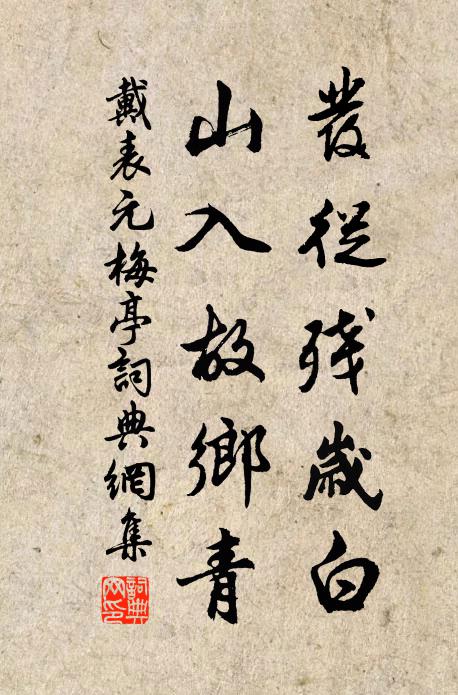 發從殘歲白
山入故鄉青
戴表元梅亭詞典網集
詞典网印